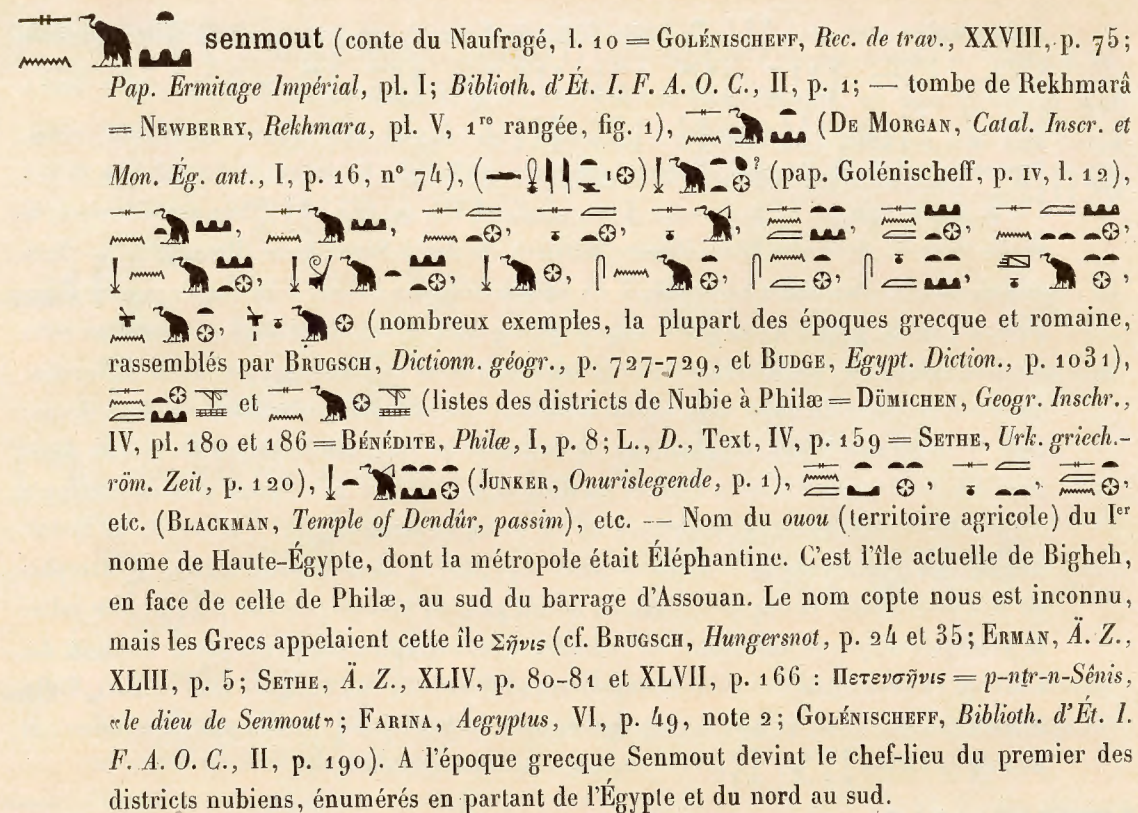 senmout (conte du Naufragé, l. 10 = GOLÉNISCHEFF, Rec. de trav., XXVIII, p. 75;
Pap. Ermitage Impérial, pl. I; Biblioth. d'Ét. I. F. A. O. C., II, p. 1; — tombe de Rekhmarâ
= NEWBERRY, Rekhmara, pl. V, 1re rangée, fig. 1), (DE MORGAN, Catal. Inscr. et
Mon. Ég. ant., I, p. 16, n° 74), ( ) ? (pap. Golénischeff, p. IV, l. 12),
(nombreux exemples, la plupart des époques grecque et romaine,
rassemblés par BRUGSCH, Dictionn. géogr., p. 727-729, et BUDGE, Egypt. Diction., p. 1031),
et (listes des districts de Nubie à Philæ = DÜMICHEN, Geogr. Inschr.,
IV, pl. 180 et 186 = BÉNÉDITE, Philæ, I, p. 8; L., D., Text, IV, p. 159 = SETHE, Urk. griech.-
röm. Zeit, p. 120), (JUNKER, Onurislegende, p. 1), , , ,
etc. (BLACKMAN, Temple of Dendûr, passim), etc. — Nom du ouou (territoire agricole) du Ier
nome de Haute-Égypte, dont la métropole était Éléphantine. C'est l'île actuelle de Bigheh,
en face de celle de Philæ, au sud du barrage d'Assouan. Le nom copte nous est inconnu,
mais les Grecs appelaient cette île Σῆνις (cf. BRUGSCH, Hungersnot, p. 24 et 35; ERMAN, Ä. Z.,
XLIII, p. 5; SETHE, Ä. Z., XLIV, p. 80-81 et XLVII, p. 166 : Πετενσῆνις = p-nṯr-n-Sênis,
«le dieu de Senmout»; FARINA, Aegyptus, VI, p. 49, note 2; GOLÉNISCHEFF, Biblioth. d'Ét. I.
F. A. O. C., II, p. 190). A l'époque grecque Senmout devint le chef-lieu du premier des
districts nubiens, énumérés en partant de l'Égypte et du nord au sud.